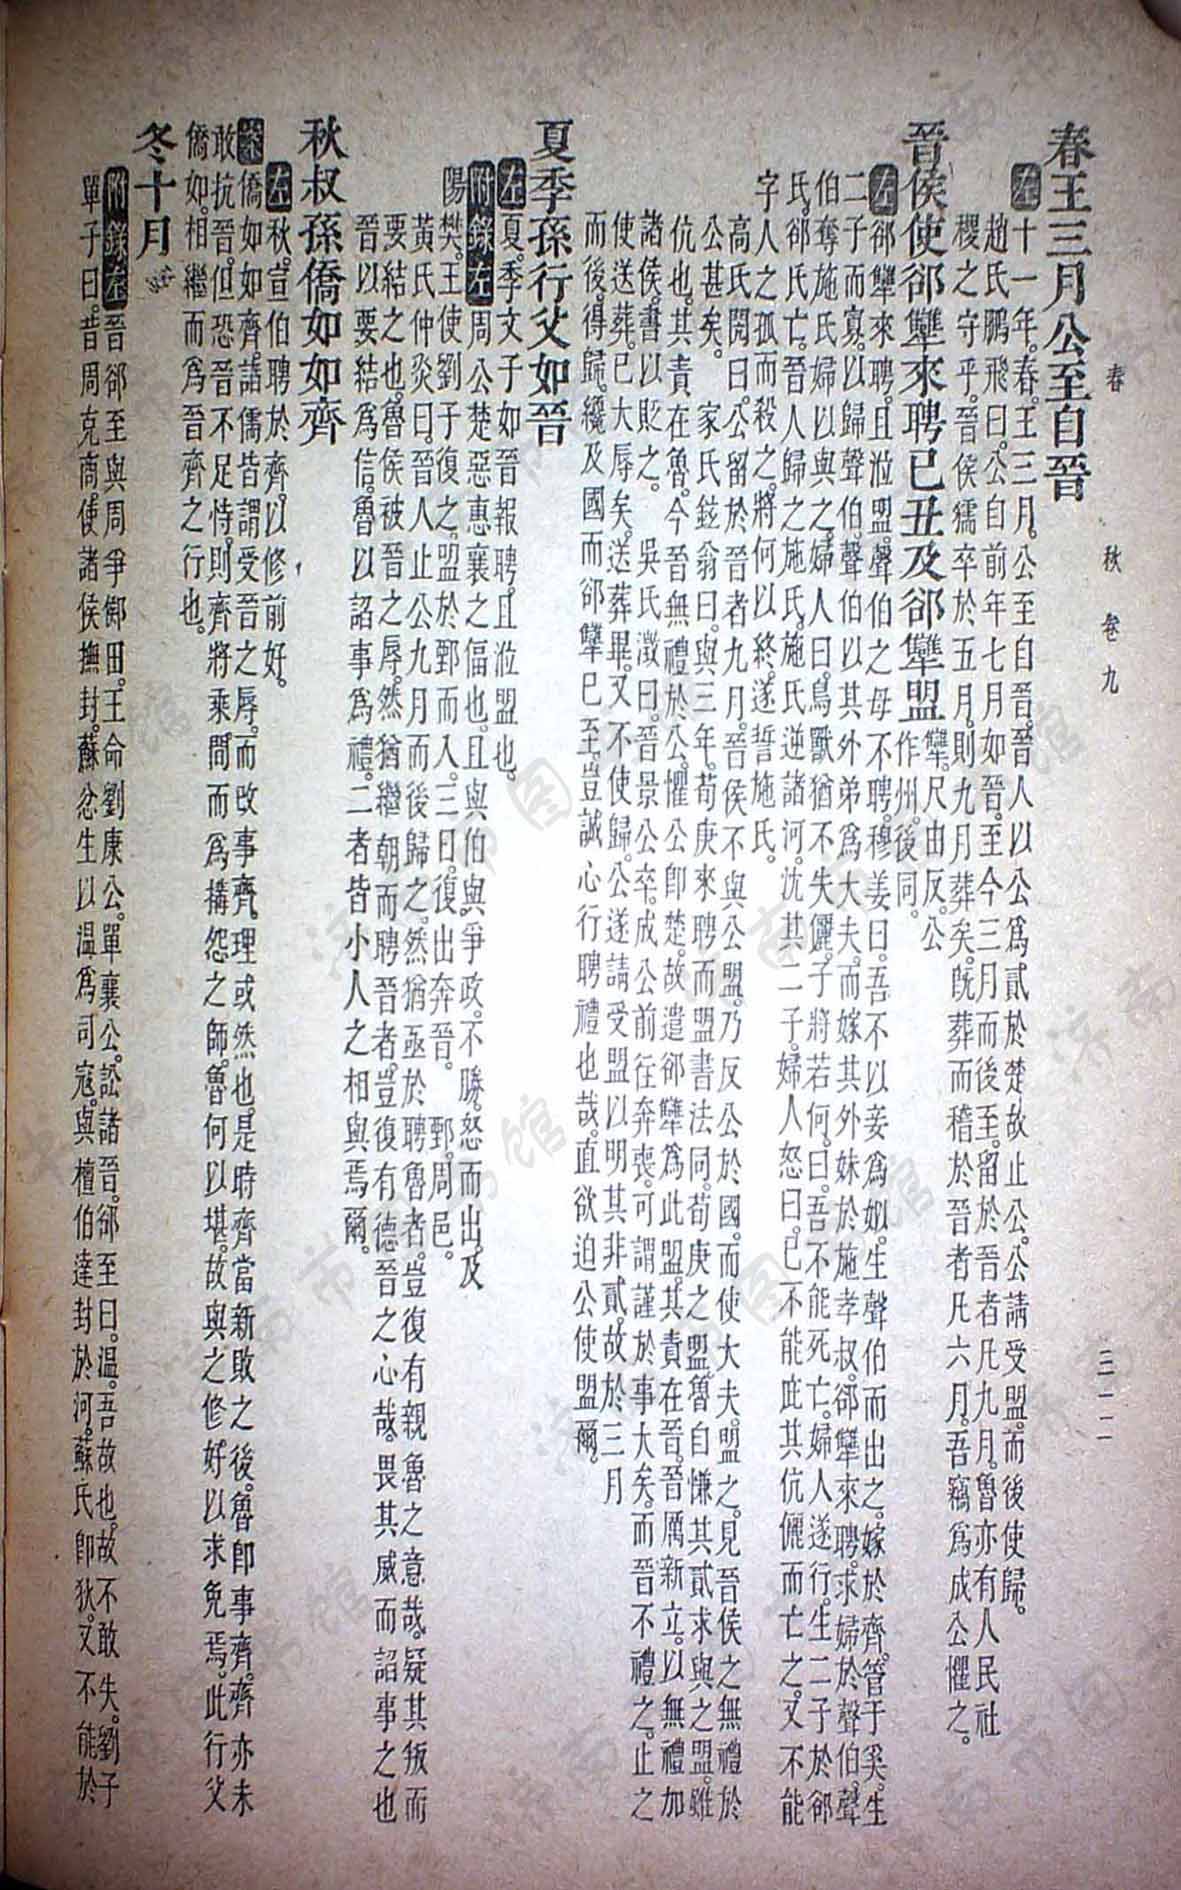 春　秋　卷九　三一二
春王三月公至自晉
左十一年。春。王三月。公至自晉。晉人以公爲貳於楚。故止公。公請受盟。而後使歸。
趙氏鵬飛曰。公自前年七月如晉。至今三月而後至。留於晉者凡九月。魯亦有人民社
稷之守乎。晉侯獳卒於五月。則九月葬矣。旣葬而稽於晉者凡六月。吾竊爲成公懼之。
晉侯使郤犫來聘已丑及郤犫盟犫。尺由反。公
作州。後同。
左郤犫來聘。且涖盟。聲伯之母不聘。穆姜曰。吾不以妾爲姒。生聲伯而出之。嫁於齊。管于奚。生
二子而寡。以歸聲伯。聲伯以其外弟爲大夫。而嫁其外妹於施孝叔。郤犫來聘。求婦於聲伯。聲
伯奪施氏婦以與之。婦人曰。鳥獸猶不失儷。子將若何。曰。吾不能死亡。婦人遂行。生二子於郤
氏。郤氏亡。晉人歸之施氏。施氏逆諸河。沈其二子。婦人怒曰。已不能庇其伉儷而亡之。又不能
字人之孤而殺之。將何以終。遂誓施氏。
高氏閌曰。公留於晉者九月。晉侯不與公盟。乃反公於國。而使大夫。盟之。見晉侯之無禮於
公甚矣。　家氏鉉翁曰。與三年。荀庚來聘而盟書法同。荀庚之盟。魯自慊其貳求與之盟。雖
伉也。其責在魯。今晉無禮於公。懼公卽楚。故遣郤犫爲此盟。其責在晉。晉厲新立。以無禮加
諸侯。書以貶之。　吳氏澂曰。晉景公卒。成公前往奔喪。可謂謹於事大矣。而晉不禮之。止之
使送葬。已大辱矣。送葬畢。又不使歸。公遂請受盟以明其非貳。故於三月
而後得歸。纔及國而郤犫已至。豈誠心行聘禮也哉。直欲迫公使盟爾。
夏季孫行父如晉
左夏。季文子如晉報聘。且涖盟也。
附錄左周公楚惡惠襄之偪也。且與伯與爭政。不勝。怒而出。及
陽樊。王使劉子復之。盟於鄄而入。三日。復出奔晉。　鄄。周邑。
黃氏仲炎曰。晉人止公九月而後歸之。然猶亟於聘魯者。豈復有親魯之意哉。疑其叛而
要結之也。魯侯被晉之辱。然猶繼朝而聘晉者。豈復有德晉之心哉。畏其威而諂事之也
晉以要結爲信。魯以諂事爲禮。二者皆小人之相與焉爾。
秋叔孫僑如如齊
左秋。宣伯聘於齊。以修前好。
案僑如如齊。諸儒皆謂受晉之辱。而改事齊。理或然也。是時齊當新敗之後。魯卽事齊。齊亦未
敢抗晉。但恐晉不足恃。則齊將乘間而爲搆怨之師。魯何以堪。故與之修好以求免焉。此行父
僑如。相繼而爲晉齊之行也。
冬十月
附錄左晉郤至與周爭鄇田。王命劉康公。單襄公。訟諸晉。郤至曰。溫。吾故也。故不敢失。劉子
單子曰。昔周克商。使諸侯撫封。蘇忿生以溫爲司寇。與檀伯達封於河。蘇氏卽狄。又不能於